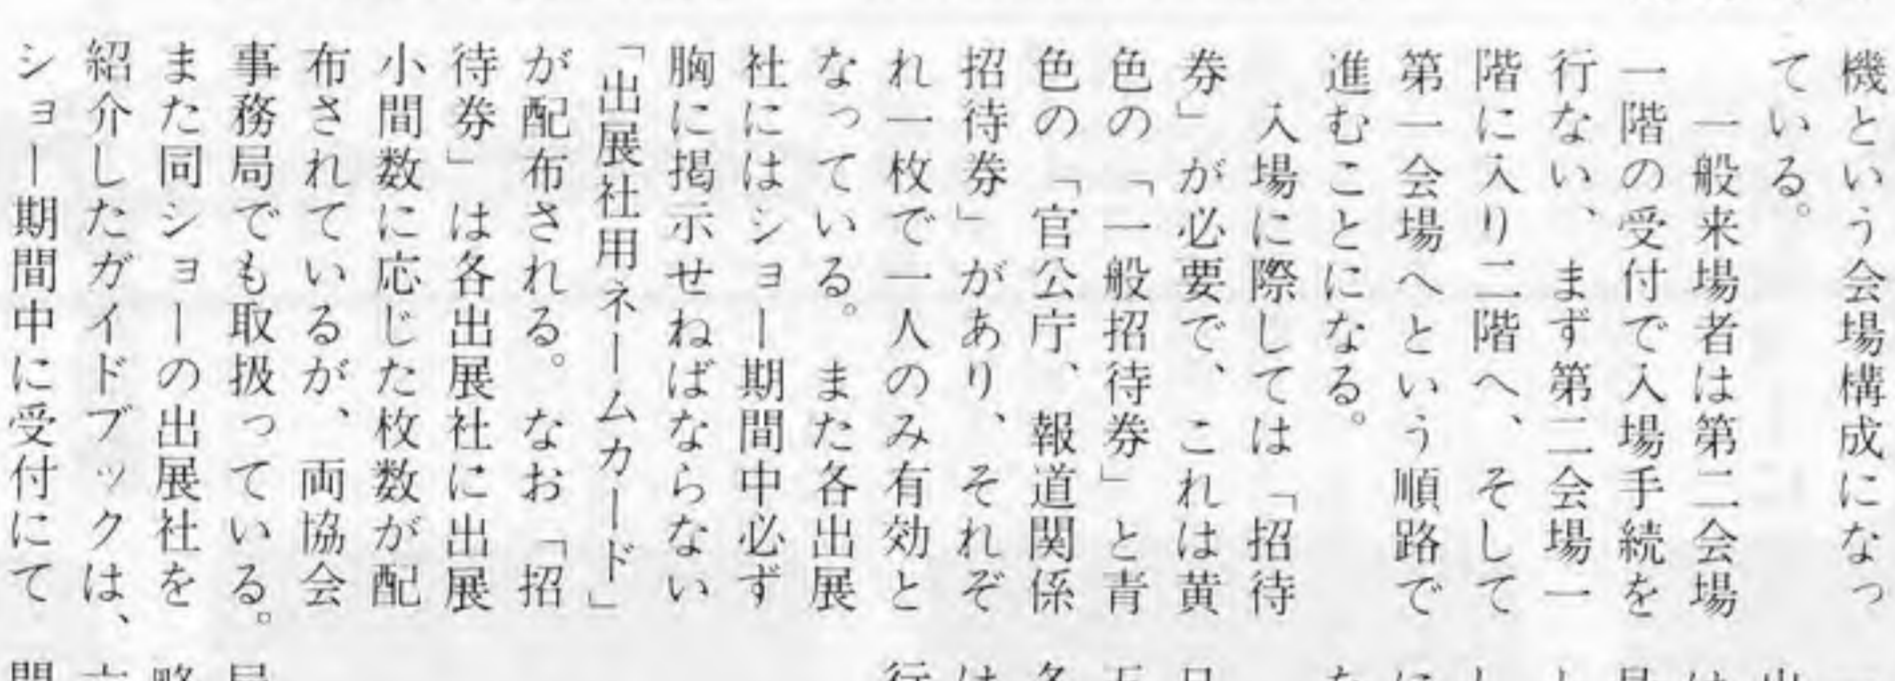 機という会場構成になっ
ている。
一般来場者は第二会場
一階の受付で入場手続を
行ない、まず第二会場一
階に入り二階へ、そして
第一会場へという順路で
進むことになる。
入場に際しては「招待
券」が必要で、これは黄
色の「一般招待券」と青
色の「官公庁、報道関係
招待券」があり、それぞ
れ一枚で一人のみ有効と
なっている。また各出展
社にはショー期間中必ず
胸に掲示せねばならない
「出展社用ネームカード」
が配布される。なお「招
待券」は各出展社に出展
小間数に応じた枚数が配
布されているが、両協会
事務局でも取扱っている。
また同ショーの出展社を
紹介したガイドブックは、
ショー期間中に受付にて